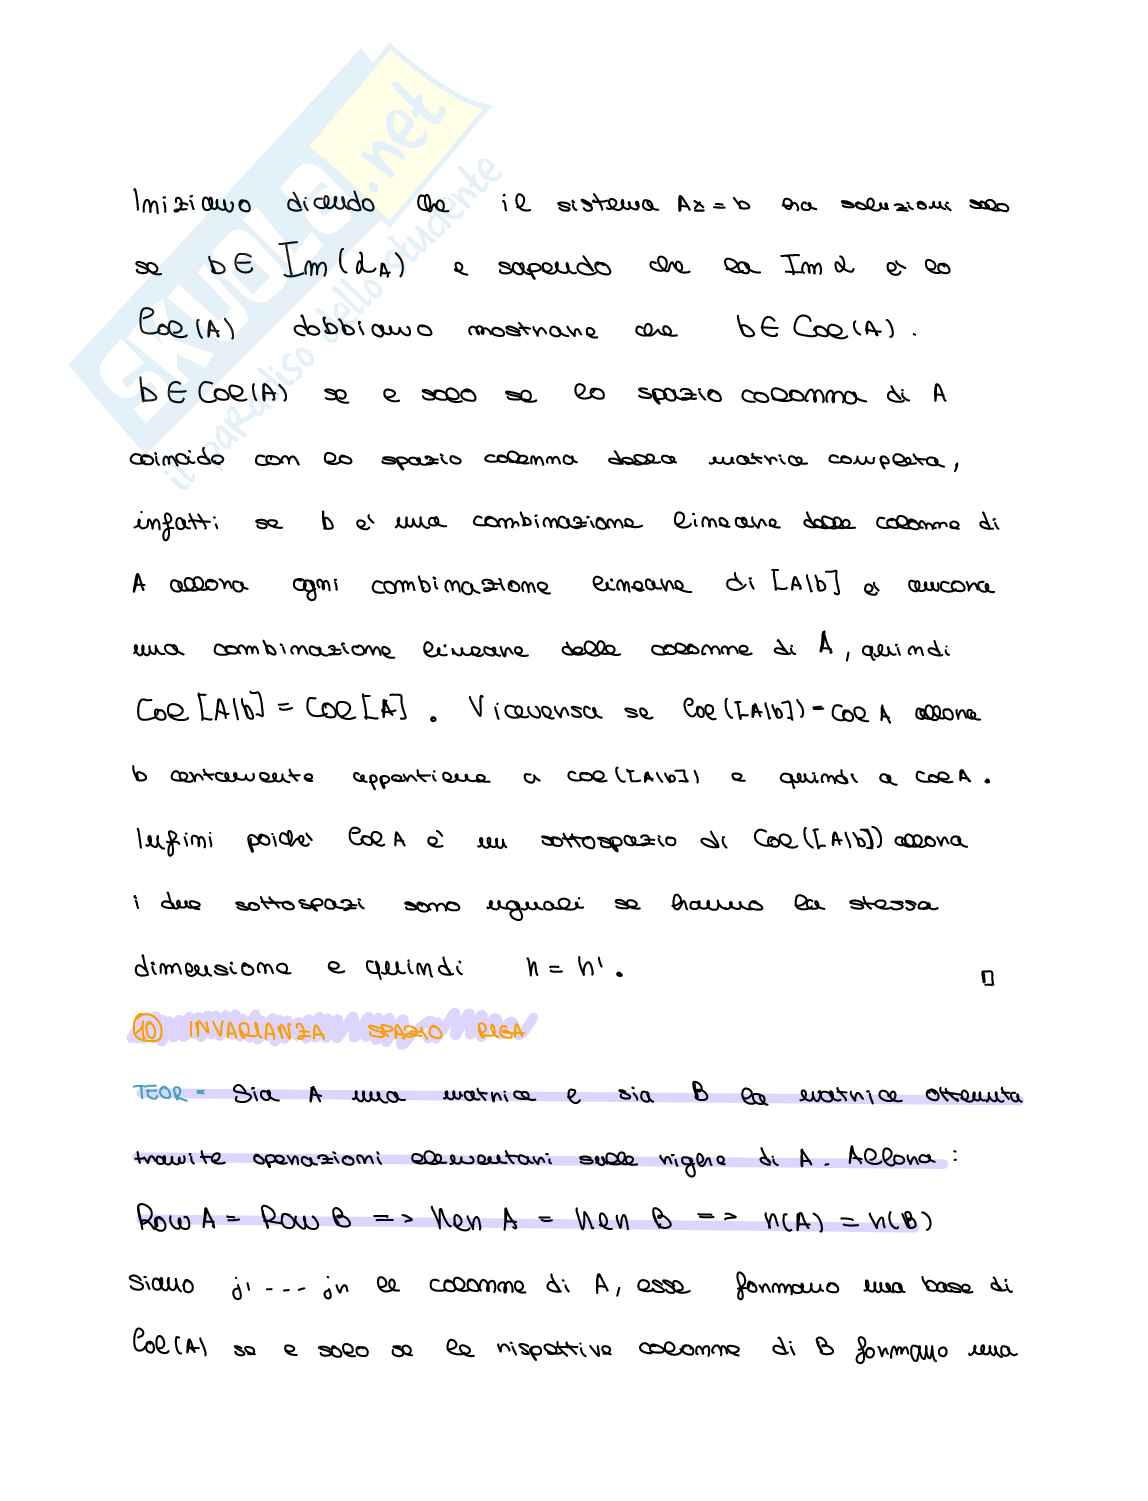 SKUOLA.net
il paradiso dello studente
Iniziamo dicendo che il sistema Ax=b ha soluzioni solo
se b∈ Im(LA) e sapendo che la Im L è lo
Col(A) dobbiamo mostrare che b∈ Col(A).
b∈Col(A) se e solo se lo spazio colonna di A
coincide con lo spazio colonna della matrice completa,
infatti se b è una combinazione lineare delle colonne di
A allora ogni combinazione lineare di [A|b] è ancora
una combinazione lineare delle colonne di A, quindi
Col[A|b] = Col[A]. Viceversa se Col([A|b])=Col A allora
b certamente appartiene a Col([A|b]) e quindi a Col A.
Infini poiché Col A è un sottospazio di Col([A|b]) allora
i due sottospazi sono uguali se hanno la stessa
dimensione e quindi r = r'. □
10 INVARIANZA SPAZIO RIGA
TEOR- Sia A una matrice e sia B la matrice ottenuta
tramite operazioni elementari sulle righe di A. Allora:
Row A = Row B => Ker A = Ker B => r(A) = r(B)
Siano j' --- jr le colonne di A, esse formano una base di
Col(A) se e solo se le rispettive colonne di B formano una